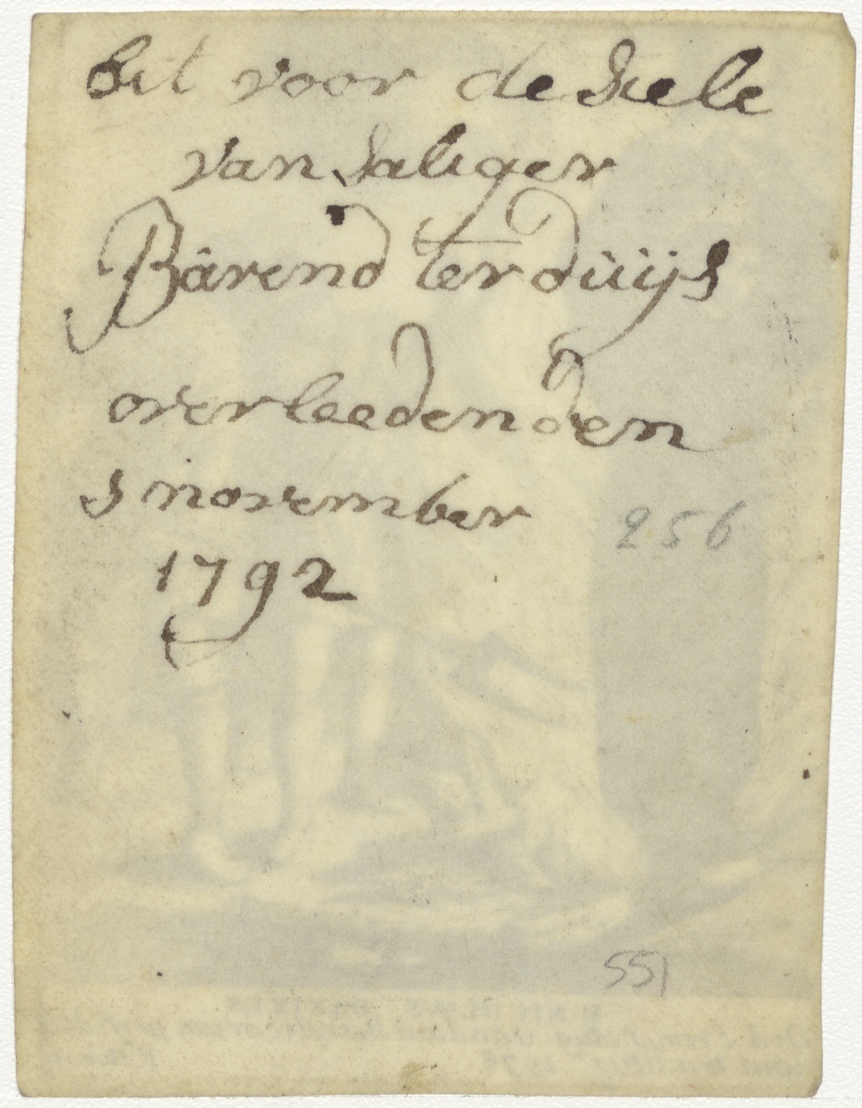 bit voor de siele
van saliger
Bârend ter dùijs
overleeden den
5 november
256
1792
551